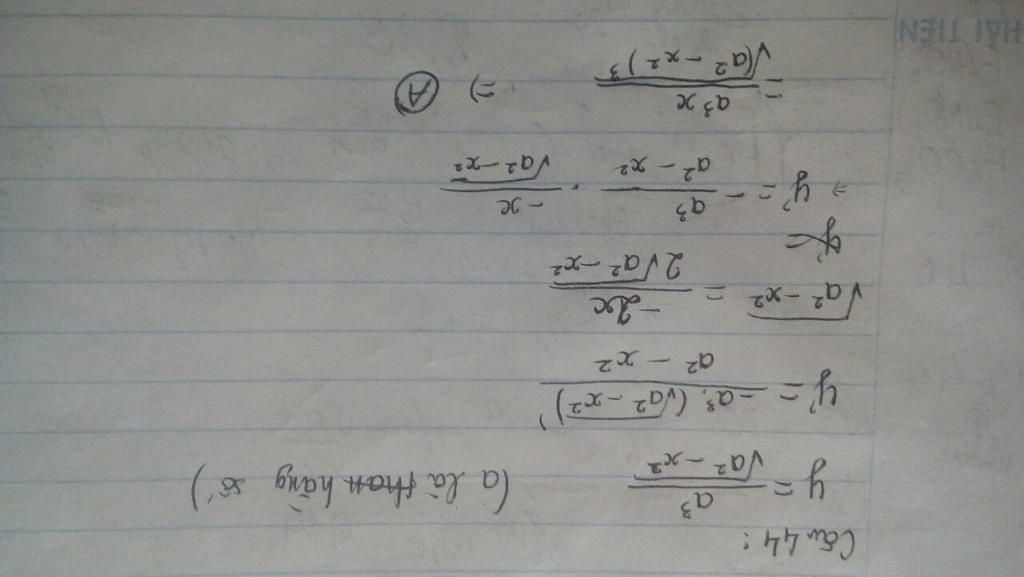 Câu 44:
y = a³ / √(a² - x²) (a là hằng số)
y' = -a³ . (√(a² - x²))' / (a² - x²)
√(a² - x²) = -2x / 2√(a² - x²)
y' =
⇒ y' = - a³ / (a² - x²) . -x / √(a² - x²)
= a³x / √(a² - x²)³ ⇒ A
HẢI TIẾN